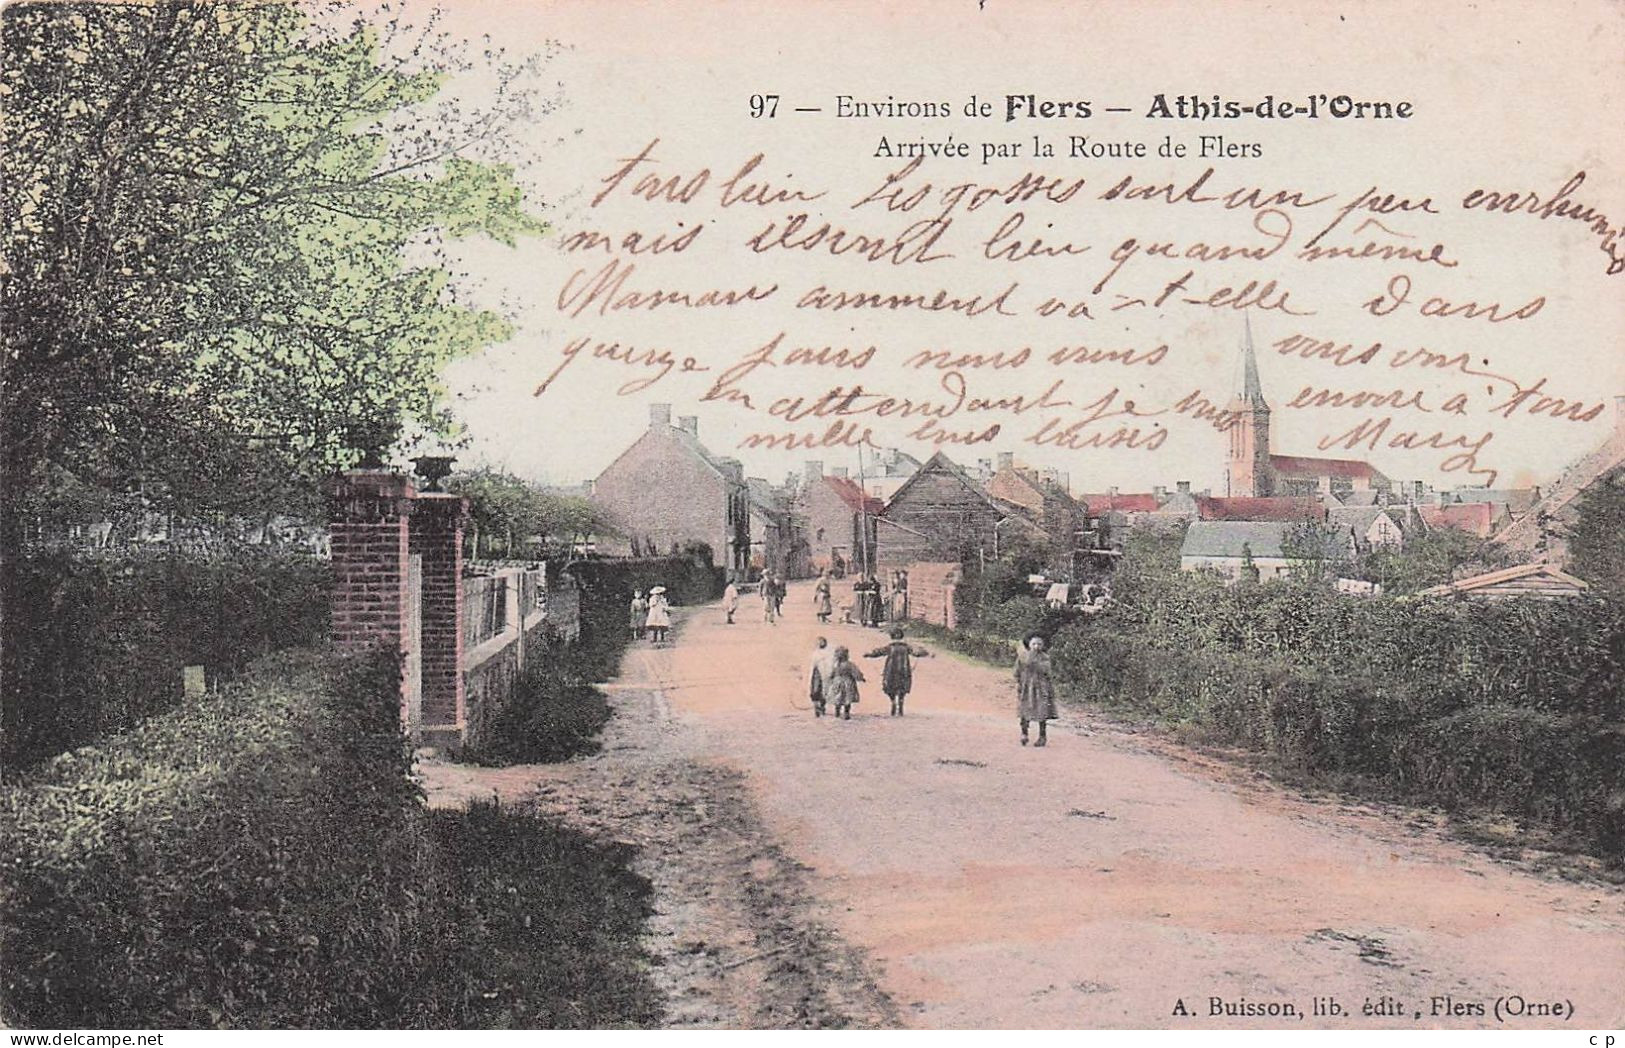 97 — Environs de Flers — Athis-de-l'Orne
Arrivée par la Route de Flers
tous bien Les gosses sont un peu enrhumés
mais ils vont bien quand même
Maman comment va-t-elle Dans
quinze jours nous irons vous voir.
en attendant je envoie à tous
mille bons baisers Mary
A. Buisson, lib. édit, Flers (Orne)
c p